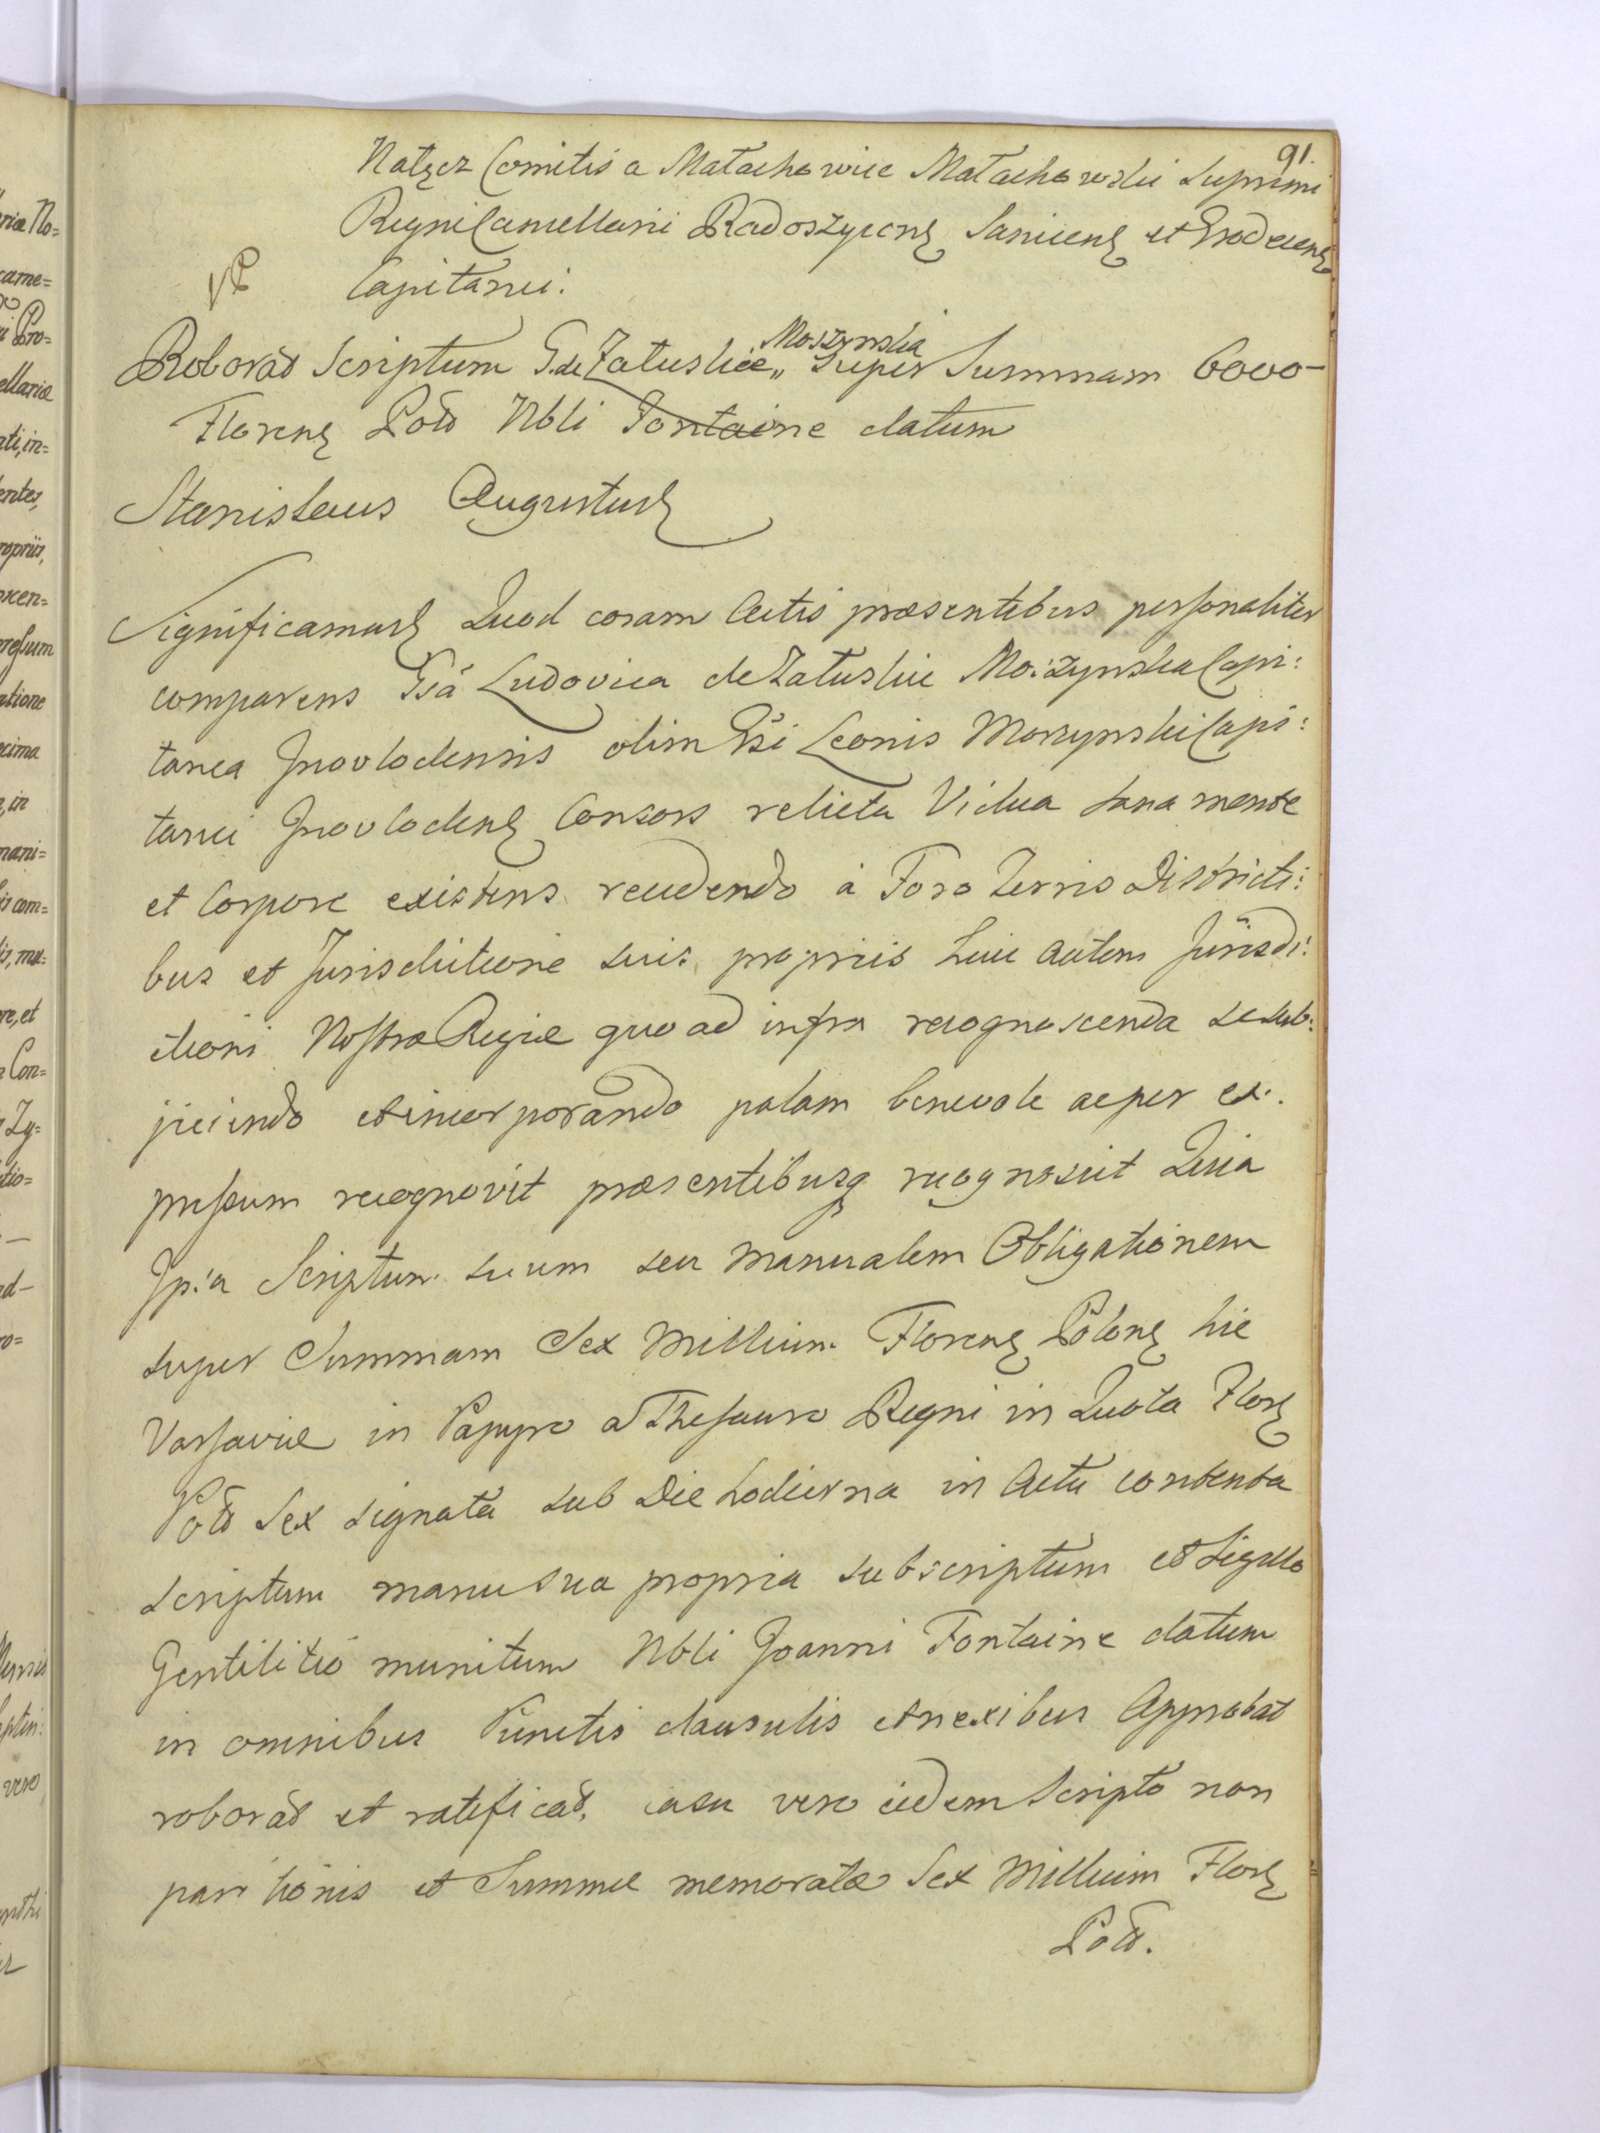 91.
Natęcz Comitis a Małachowice Małachowski Supremi
Regni Cancellarii Radoszycens Sanicens et Grodecens
Capitanei.
Roborat Scriptum G. de Załuskie Moszynska Super Summam 6000-
Florens Pol Nbli Fontaine datum
Stanislaus Augustus
Significamus Quod coram Actis præsentibus personaliter
comparens Gsa Ludovica de Załuskie Moszynska Capi:
tanea Inovlodensis olim Gsi Leonis Moszynski Capi:
tanei Inovlodens Consors relicta Vidua sana mente
et Corpore existens recedendo à Foro Terris Districti:
bus et Jurisdictione suis propriis huic autem Jurisdi:
ctioni Nostræ Regiæ quo ad infra recognoscenda se sub:
jiciendo et incorporando palam benevole ac per ex:
pressum recognovit præsentibusq recognoscit Quia
Ip:a Scriptum suum seu manualem Obligationem
super Summam Sex Millium Florens Polons hic
Varsaviæ in Papyro a Thesauro Regni in Quota Flors
Pol Sex signata sub Die hodierna in Actu contenta
scriptum manu sua propria subscriptum et Sigillo
Gentilitio munitum Nbli Joanni Fontaine datum
in omnibus Punctis clausulis et nexibus Approbat
roborat et ratificat, casu vero eidem Scripto non
paritionis et Summæ memoratæ Sex Millium Flors
Pol.